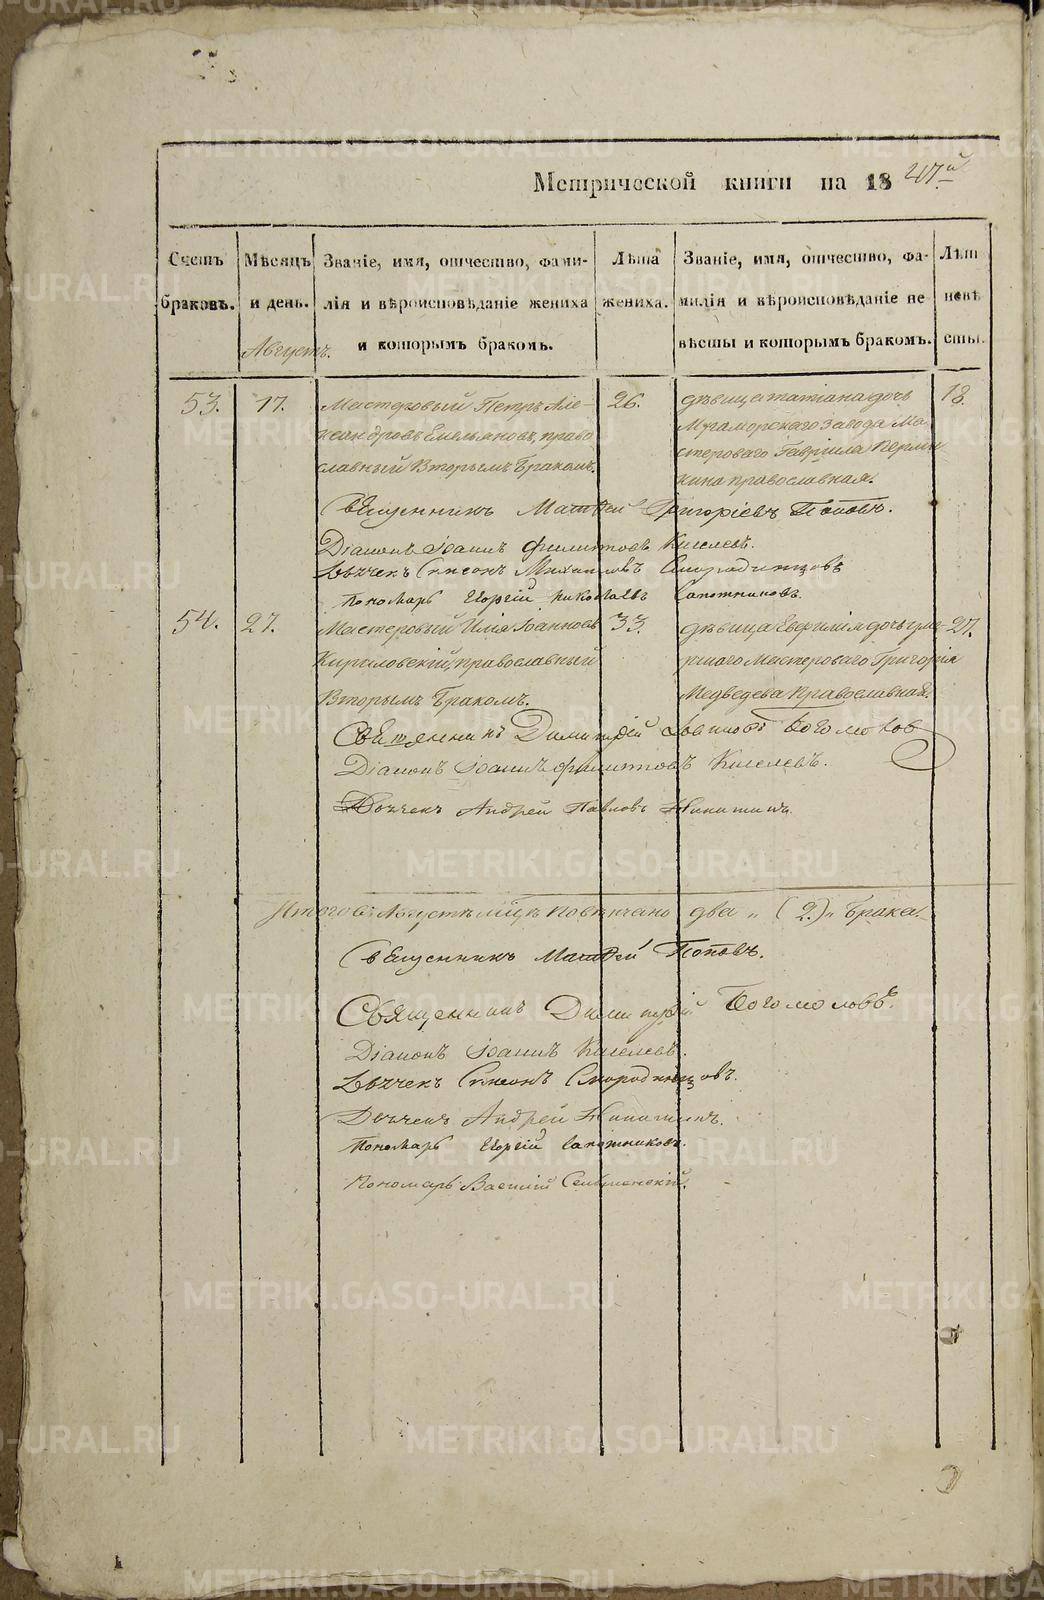 Метрической книги на 1847й
Счетъ браковъ.
Мѣсяцъ и день.
Званіе, имя, отчество, фамилія и вѣроисповѣданіе жениха и которымъ бракомъ.
Лѣта жениха.
Званіе, имя, отчество, фамилія и вѣроисповѣданіе невѣсты и которымъ бракомъ.
Лѣт невѣ сты.
Августъ.
53.
17.
Мастеровый Петръ Але-
ксандровъ Емельяновъ, право
славный Вторымъ Бракомъ.
26.
дѣвица татіана дочь
Мраморскаго завода Ма
стероваго Гавріила
православная.
18.
Священникъ Матѳей Григоріевъ Поповъ.
Діаконъ Іоаннъ Филиповъ Киселевъ.
Дьячекъ Симеонъ Михаиловъ Смородинцовъ
Пономарь Георгій Николаевъ Сапожниковъ.
54.
27.
Мастеровый Илія Іоанновъ
Кириловскій, православный
Вторымъ Бракомъ.
33.
дѣвица Евфимія дочь уме-
ршаго Мастероваго Григорія
Медведева Православная.
27.
Священникъ Димитрій Богомолов
Діаконъ Іоаннъ Филиповъ Киселевъ.
Дьячекъ Андрей Павловъ Никитинъ.
Итого въ Августѣ мцѣ повѣнчано два „ (2.) „ Брака.
Священникъ Матѳей Поповъ.
Священникъ Димитрій Богомоловъ.
Діаконъ Іоаннъ Киселевъ.
Дьячекъ Симеонъ Смородинцовъ.
Дьячекъ Андрей Никитинъ.
Пономарь Георгій Сапожниковъ.
Пономарь Василій
METRIKI.GASO-URAL.RU